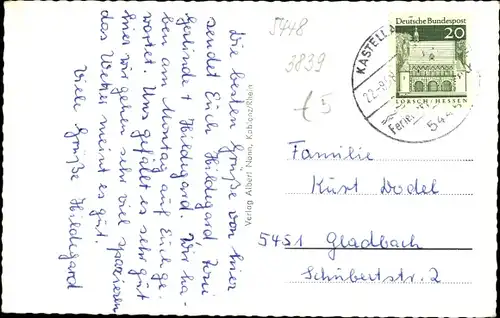 Die besten Grüße von hier
sendet Euch Hildegard
Gerlinde + Hildegard. Wir ha-
ben am Montag auf Euch ge-
wartet. Uns gefällt es sehr gut
hier wir gehen sehr viel spazieren
das Wetter meint es gut.
Viele Grüße Hildegard
Verlag Albert Nonn, Koblenz/Rhein
5448
3839
Deutsche Bundespost
20
LORSCH/HESSEN
KASTELL
Familie
Kurt Dodel
5451 Gladbach
Schubertstr. 2